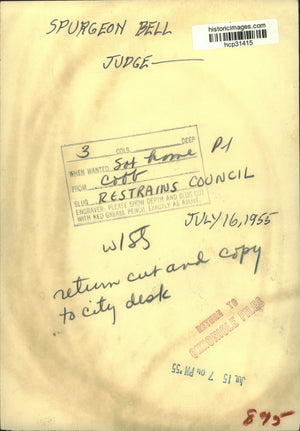 historicimages.com
hcp31415
SPURGEON BELL
JUDGE
3 COLS. DEEP
WHEN WANTED Sat home P1
FROM Cobb
SLUG RESTRAINS COUNCIL
ENGRAVER: PLEASE SHOW DEPTH AND SLUG CUT
WITH RED GREASE PENCIL EXACTLY AS ABOVE.
JULY 16, 1955
return cut and copy
to city desk
RETURN TO
CHRONICLE FILES
JUL 15 7 00 PM '55
895